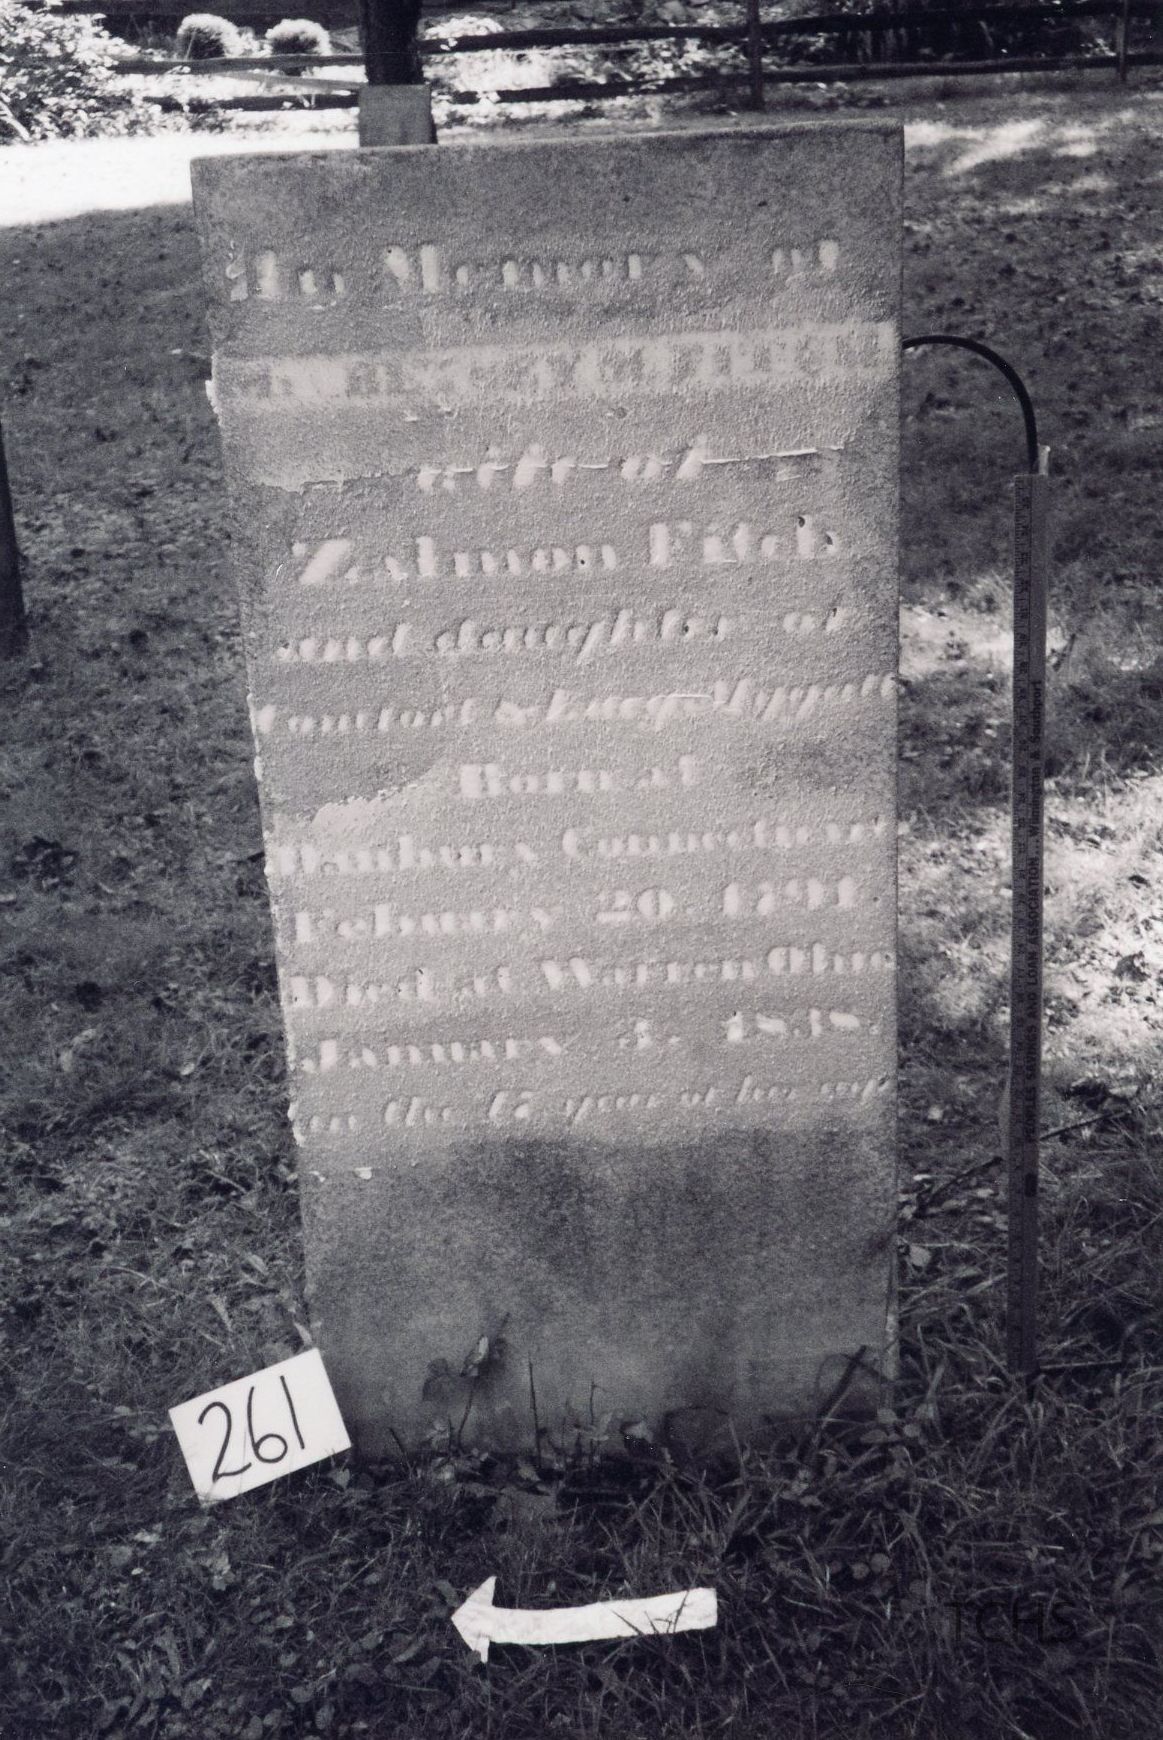 In Memory of
FITCH
wife of
Zalmon Fitch
and daughter of
Comfort &
Born at
Danbury Connecticut
Febuary 20. 1791
Died at Warren Ohio
January 3. 1838.
in the 47 year of her age
261
TCHS